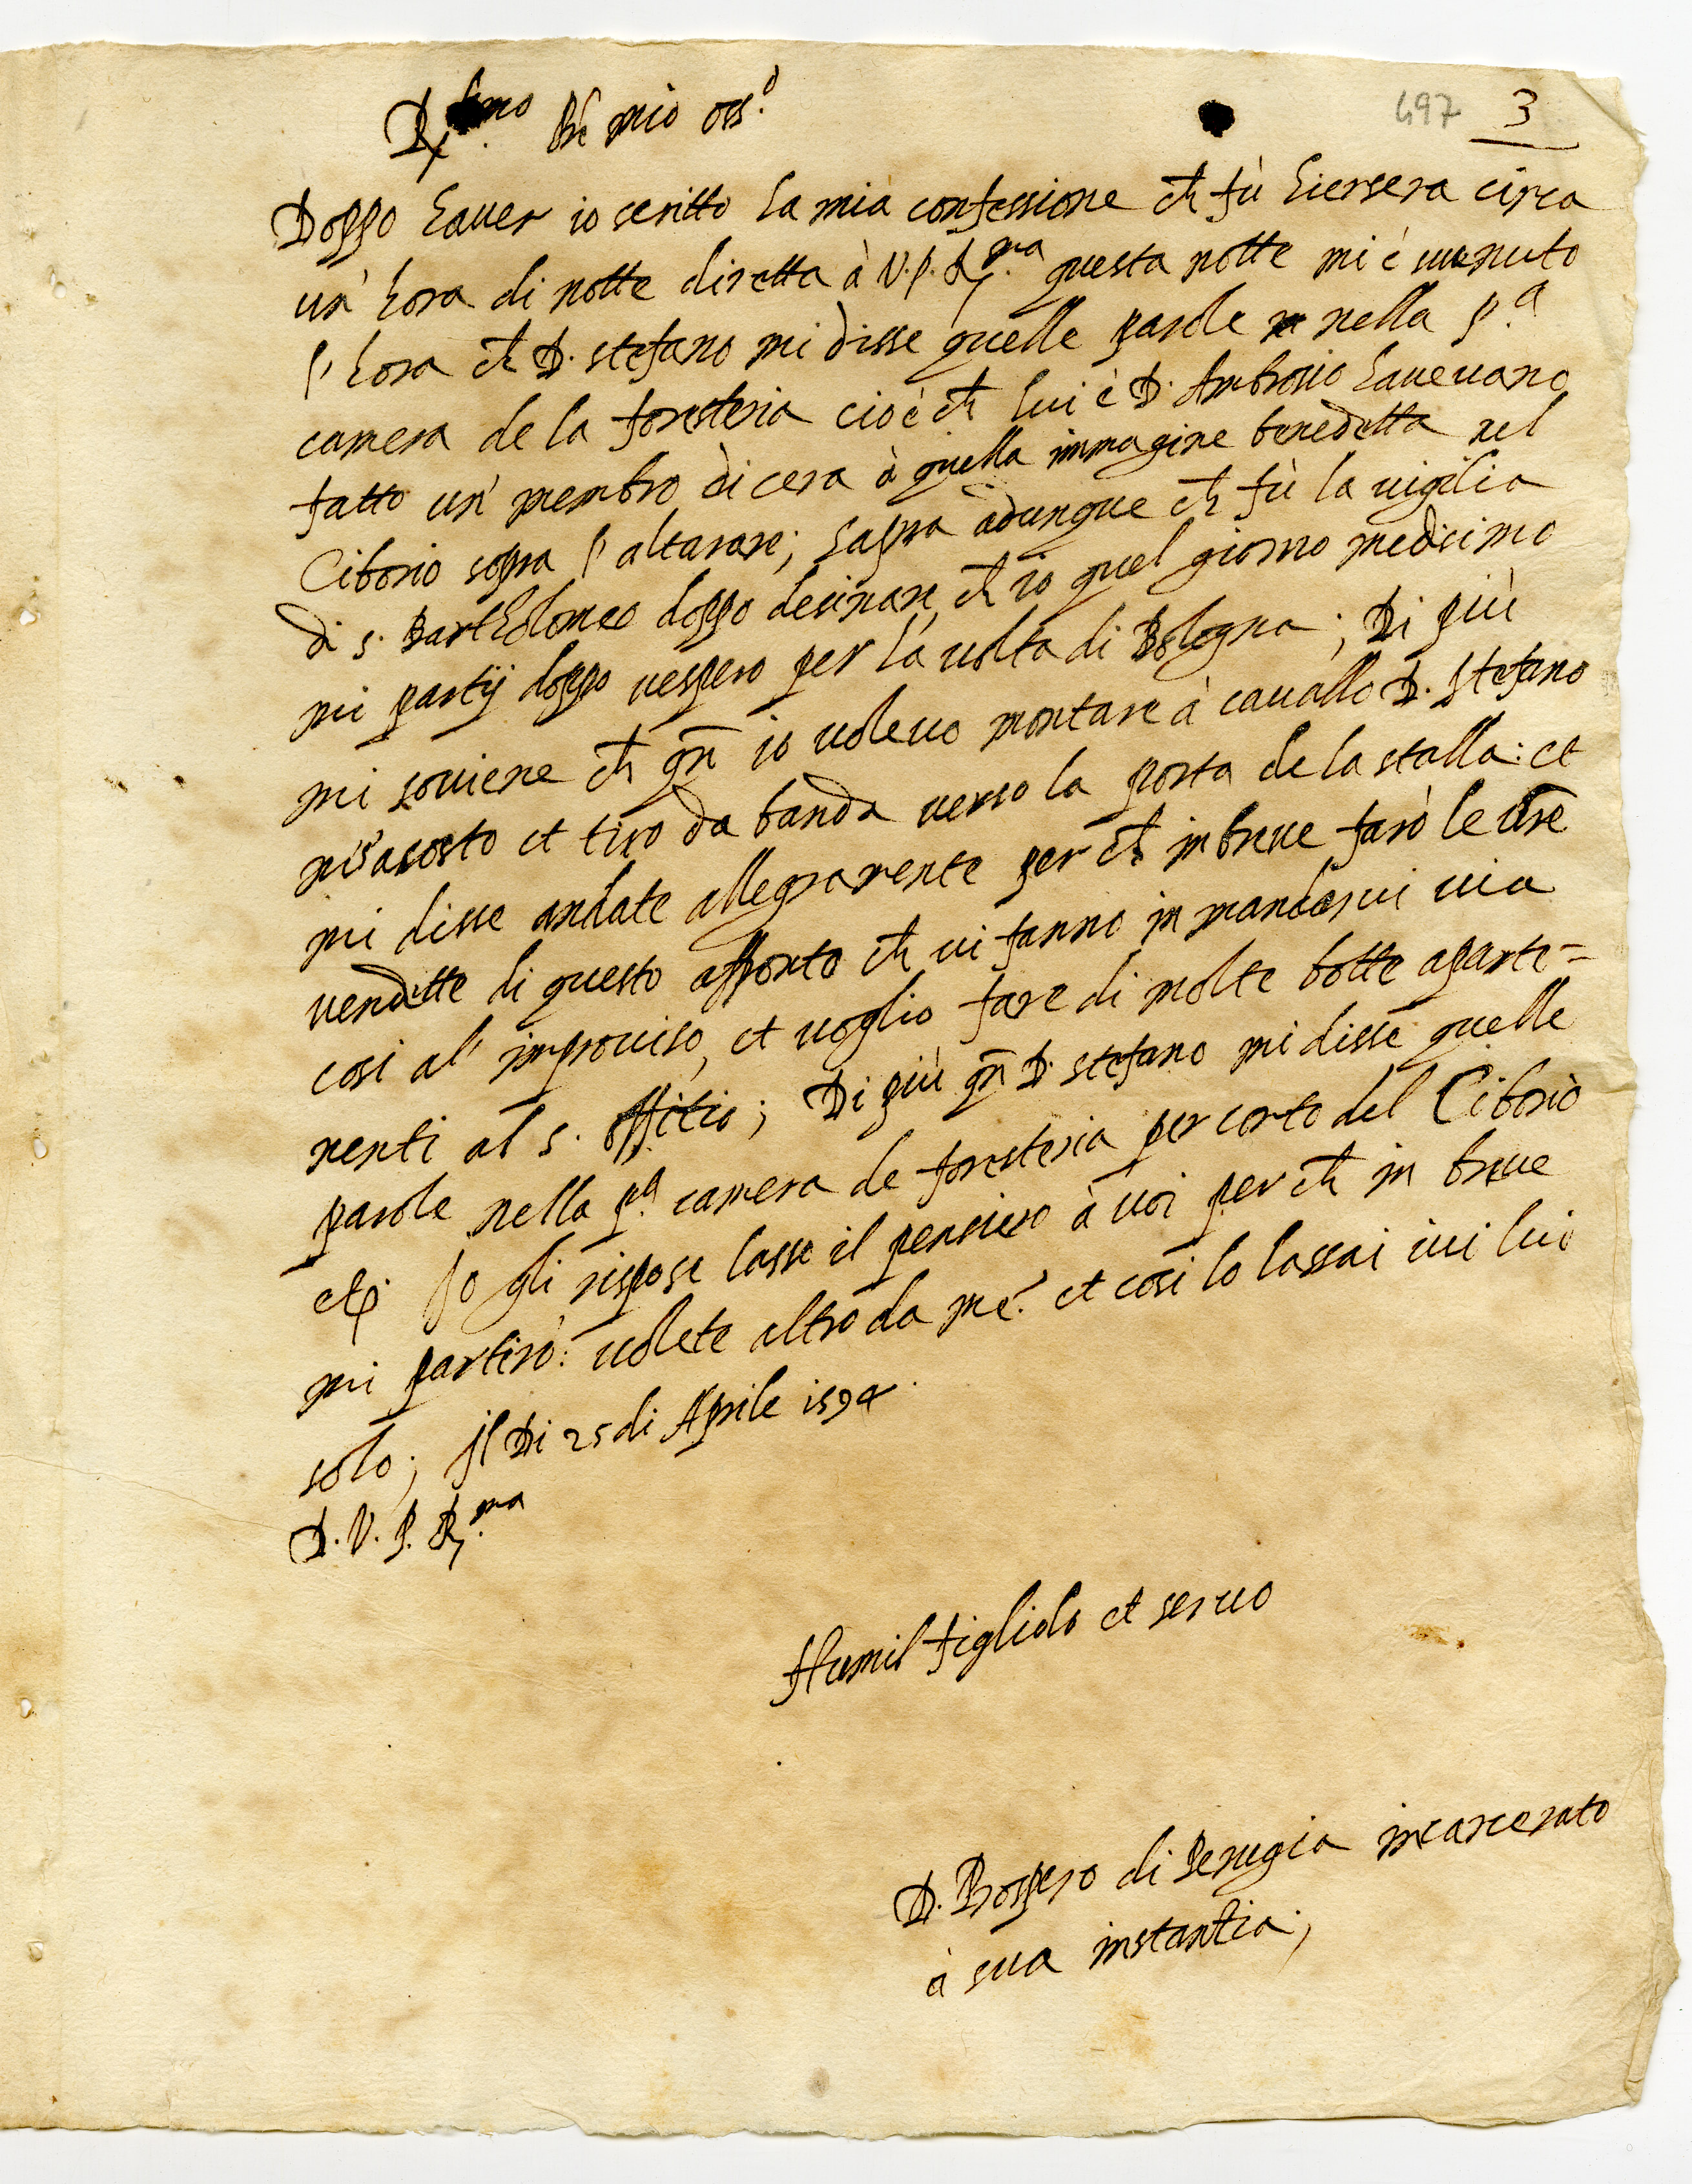 497 3
R.mo P̃re mio oss.o
Doppo hauer io scritto la mia confessione ch̃ fù hiersera circa
un' hora di notte diretta à V.P.R.ma questa notte mi è uenuto
l'hora ch̃ D. stefano mi disse quelle parole nella p.a
camera de la foresteria cioè ch̃ lui è D. Ambrosio haueuano
fatto un' membro di cera à quella immagine benedetta nel
Ciborio sopra l'altarare; sapra adunque ch̃ fù la uigilia
di s. Bartholomeo doppo desinare, ch̃ io quel giorno medesimo
mi partij doppo uespero per la uolta di Bologna; Di più
mi souiene ch̃ qñ io uoleuo montare à cauallo D. Stefano
mi s'acosto et tiro da banda uerso la porta de la stalla: et
mi disse andate allegramente per ch̃ in breue farò le ũre
vendette di questo affronto ch̃ ui fanno in mandarui uia
cosi al' improuiso, et uoglio fare di molte botte aparte=
nenti al s. offitio; Di più qñ D. stefano mi disse quelle
parole nella p.a camera de foresteria per conto del Ciborio
etc̃ Io gli rispose lasso il pensiero à uoi per ch̃ in breue
mi partirò: uolete altro da me? et cosi lo lassai iui lui
solo; Il Di 25 di Aprile 1594.
D. V. P. R.ma
Humil figliolo et seruo
D. Prospero di Perugia incarcerato
à sua instantia;